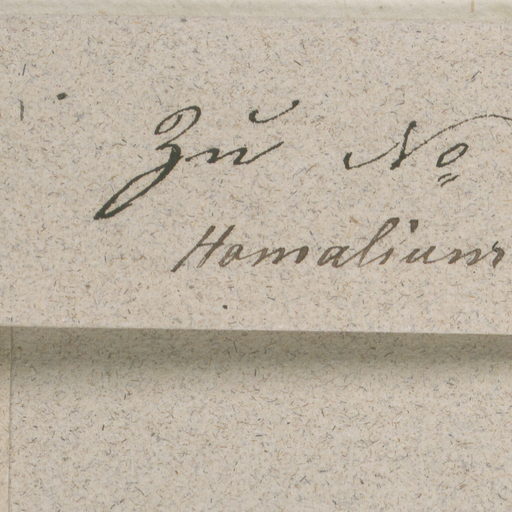 Zu No
Homalium